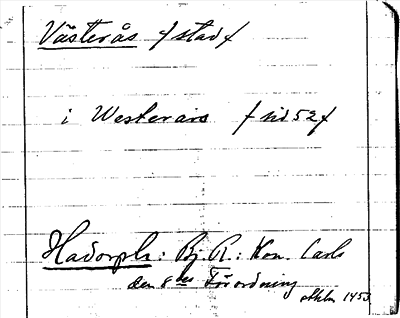 Västerås /stad/
i Westerårs /sid 52/
Hadorph: Bj. R.: Kon. Carls
den 8des Förordning
1453